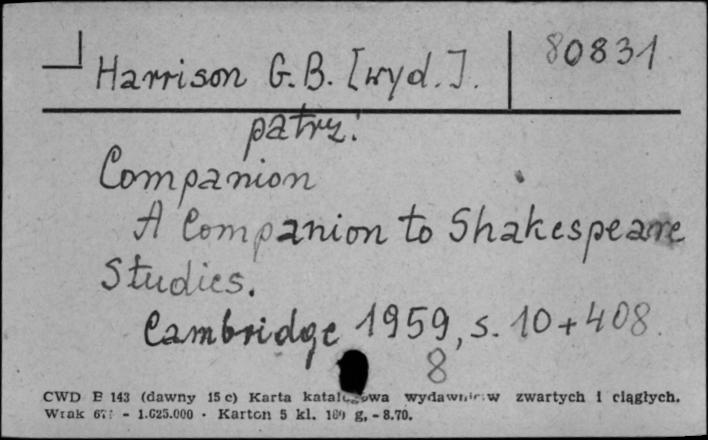 Harrison G.B. [wyd.]. 80831
patrz:
Companion
A Companion to Shakespeare
Studies.
Cambridge 1959, s. 10+408.
8
CWD E 143 (dawny 15 c) Karta katalogowa wydawnictw zwartych i ciągłych.
- 1.625.000 · Karton 5 kl. g, - 8.70.